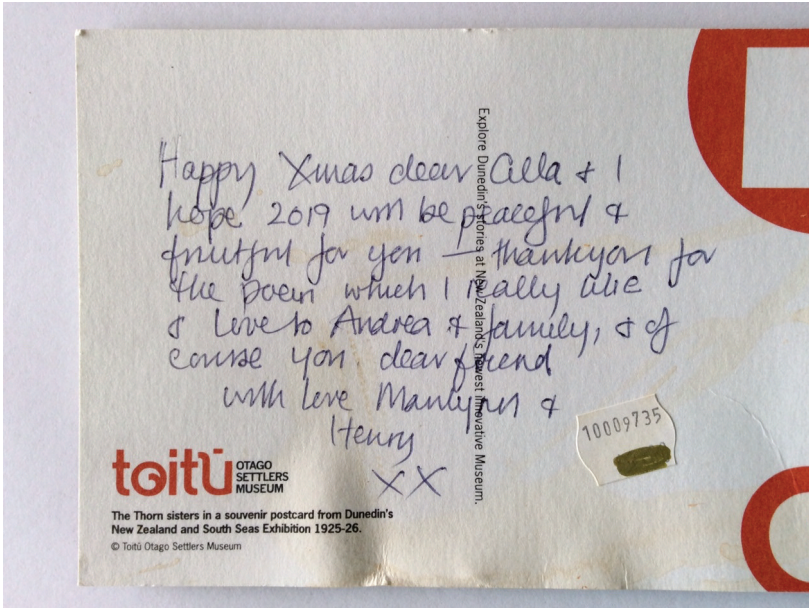 Happy Xmas dear Cilla & I
hope 2019 will be peaceful &
fruitful for you — thankyou for
the poem which I really like
& love to Andrea & family, & of
course you dear friend
with love Marilynn &
Henry
XX
Explore Dunedin's stories at New Zealand's newest innovative Museum.
10009735
toitū OTAGO
SETTLERS
MUSEUM
The Thorn sisters in a souvenir postcard from Dunedin's
New Zealand and South Seas Exhibition 1925-26.
© Toitū Otago Settlers Museum